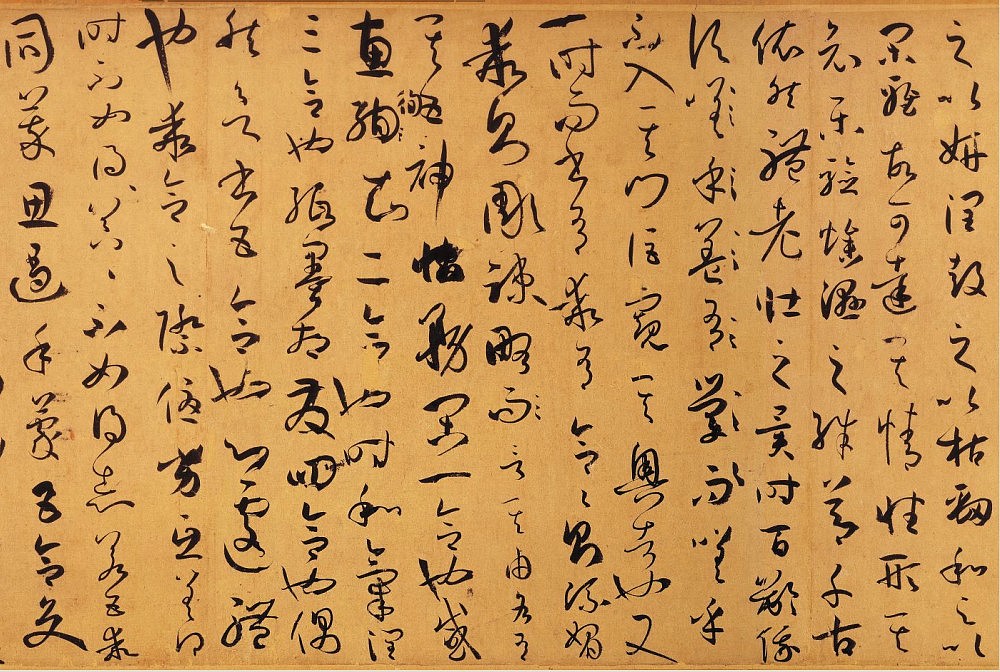 之以妍潤鼓之以枯勁和之以
閑雅故可達其情性形其
哀樂驗燥濕之殊節千古
依然體老壯之異時百齡俄
頃嗟乎蓋有學而嗟乎
不入其門詎窺其奧者也又
一時而書有乖有合合則流媚
乖則彫疎略而言其由各有
其五神怡務閑一合也感
惠徇知二合也時和氣潤
徇
三合也紙墨相發四合也偶
然欲書五合也心遽體
也乖合之際優劣互差得
時不如得器得器不如得志若五乖
同萃思遏手蒙五合交